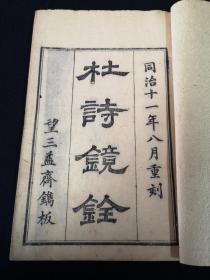 同治十一年八月重刻
杜詩鏡銓
望三益齋鐫板